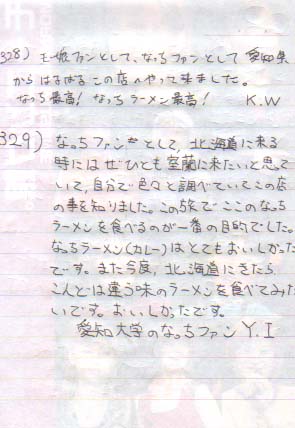 328) モー娘ファンとして、なっちファンとして 愛知県
からはるばるこの店へやって来ました。
なっち最高! なっちラーメン最高! K.W
329) なっちファンとして、北海道に来る
時にはぜひとも室蘭に来たいと思って
いて、自分で色々と調べていてこの店
の事を知りました。この旅でここのなっち
ラーメンを食べるのが一番の目的でした。
なっちラーメン(カレー)はとてもおいしかった
です。また今度、北海道にきたら
こんどは違う味のラーメンを食べてみた
いです。おいしかったです。
愛知大学のなっちファン Y.I